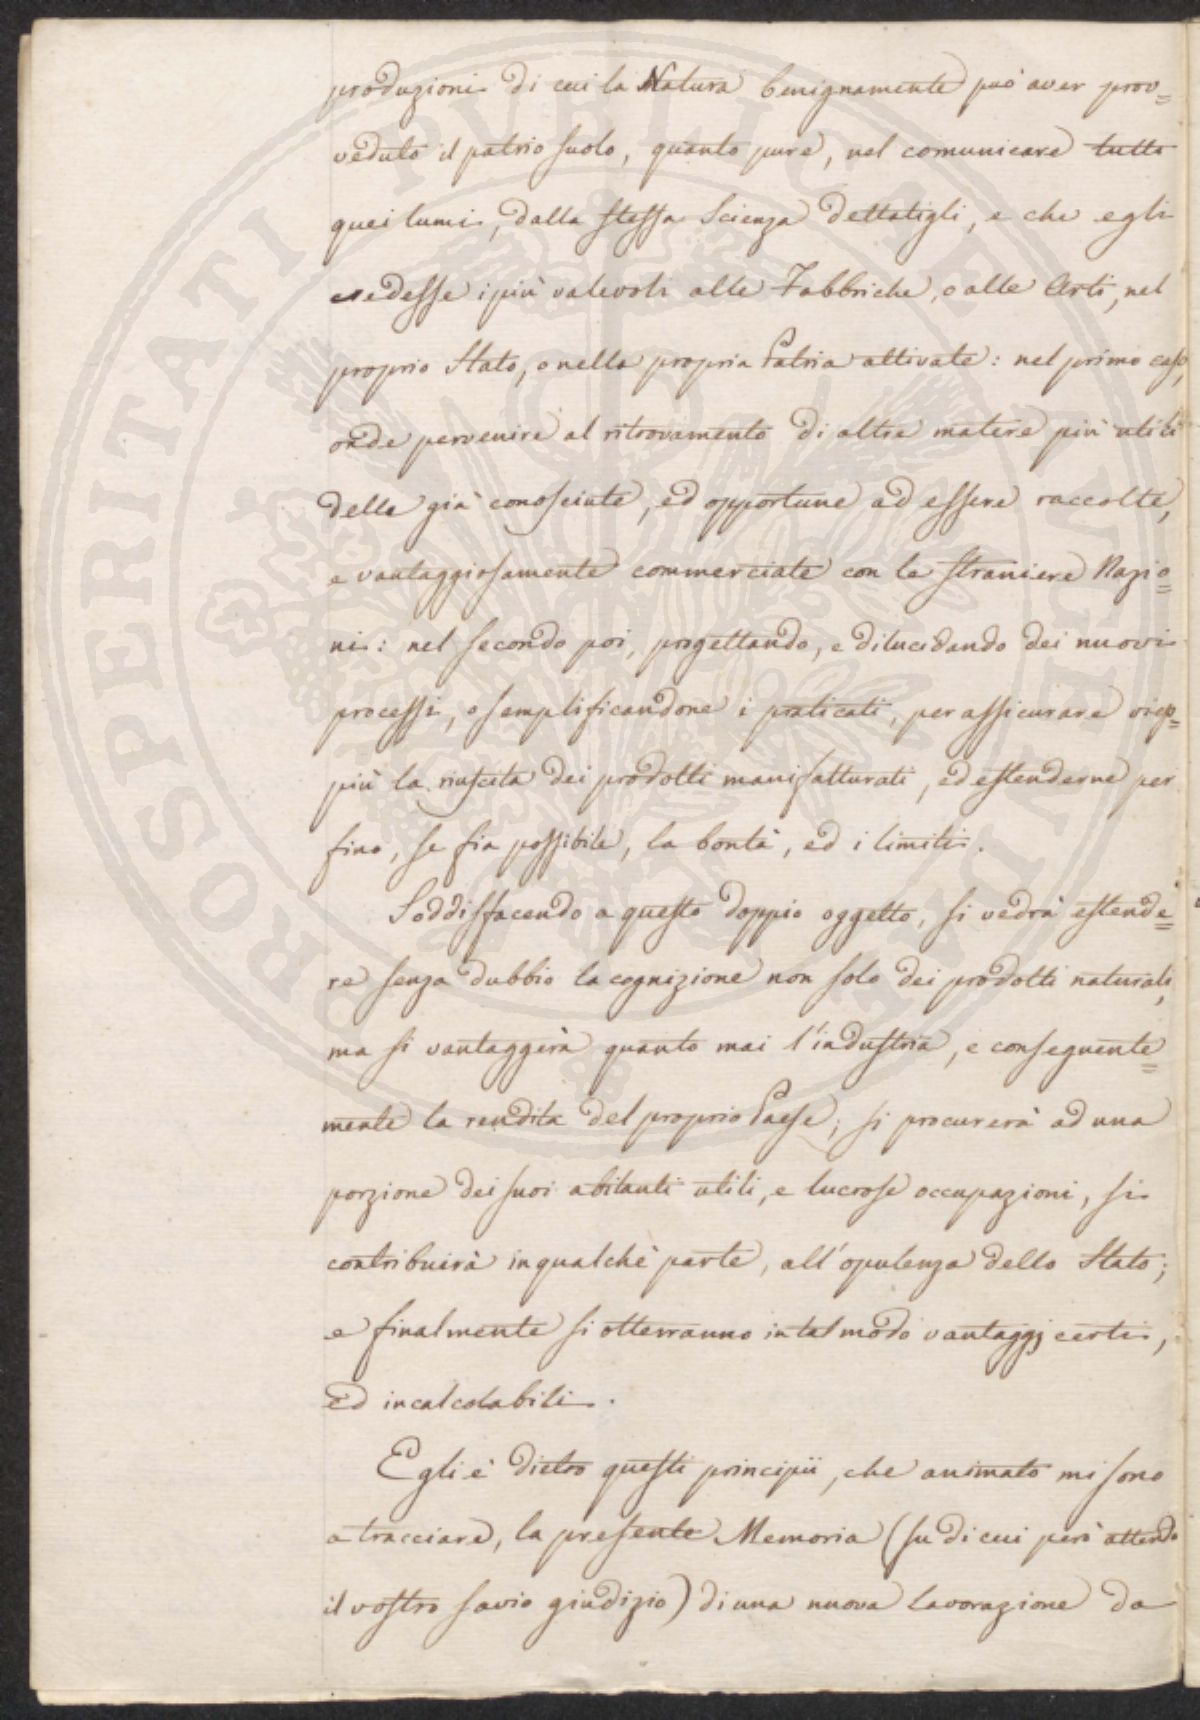 produzioni di cui la Natura benignamente può aver prov=
veduto il patrio suolo, quanto pure, nel comunicare tutti
quei lumi, dalla stessa Scienza dettatigli, e che egli
credesse i più valevoli alle Fabbriche, o alle Arti, nel
proprio Stato, o nella propria Patria attivate: nel primo caso,
onde pervenire al ritrovamento di altre materie più utili
delle già conosciute, ed opportune ad essere raccolte,
e vantaggiosamente commerciate con le straniere Nazio=
ni: nel secondo poi, progettando, e dilucidando dei nuovi
processi, o semplificandone i praticati, per assicurare viep=
più la riuscita dei prodotti manifatturati, ed estenderne per
fino, se fia possibile, la bontà, ed i limiti.
Soddisfacendo a questo doppio oggetto, si vedrà estende=
re senza dubbio la cognizione non solo dei prodotti naturali,
ma si vantaggerà quanto mai l'industria, e conseguente=
mente la rendita del proprio Paese; si procurerà ad una
porzione dei suoi abitanti utili, e lucrose occupazioni, si
contribuirà in qualche parte, all'opulenza dello Stato;
e finalmente si otterranno in tal modo vantaggj certi,
ed incalcolabili.
Egli è dietro questi principii, che animato mi sono
a tracciare, la presente Memoria (su di cui però attendo
il vostro savio giudizio) di una nuova lavorazione da
PROSPERITATI PUBLICAE AUGENDAE